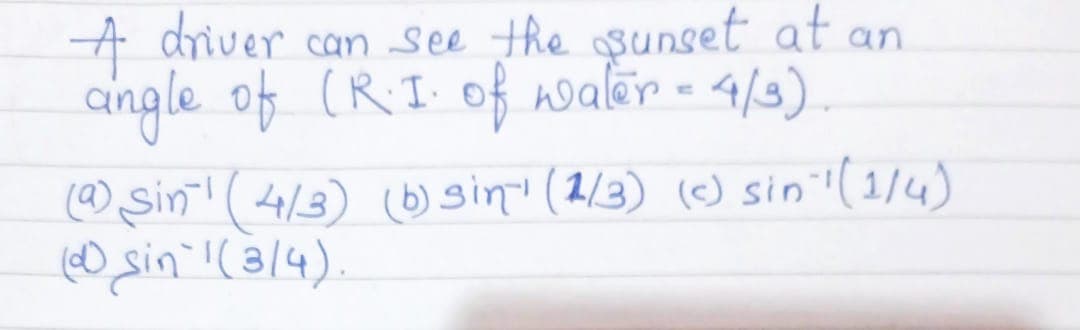 A driver can see the sunset at an
angle of (R.I. of water = 4/3).
(a) sin⁻¹(4/3) (b) sin⁻¹(1/3) (c) sin⁻¹(1/4)
(d) sin⁻¹(3/4).